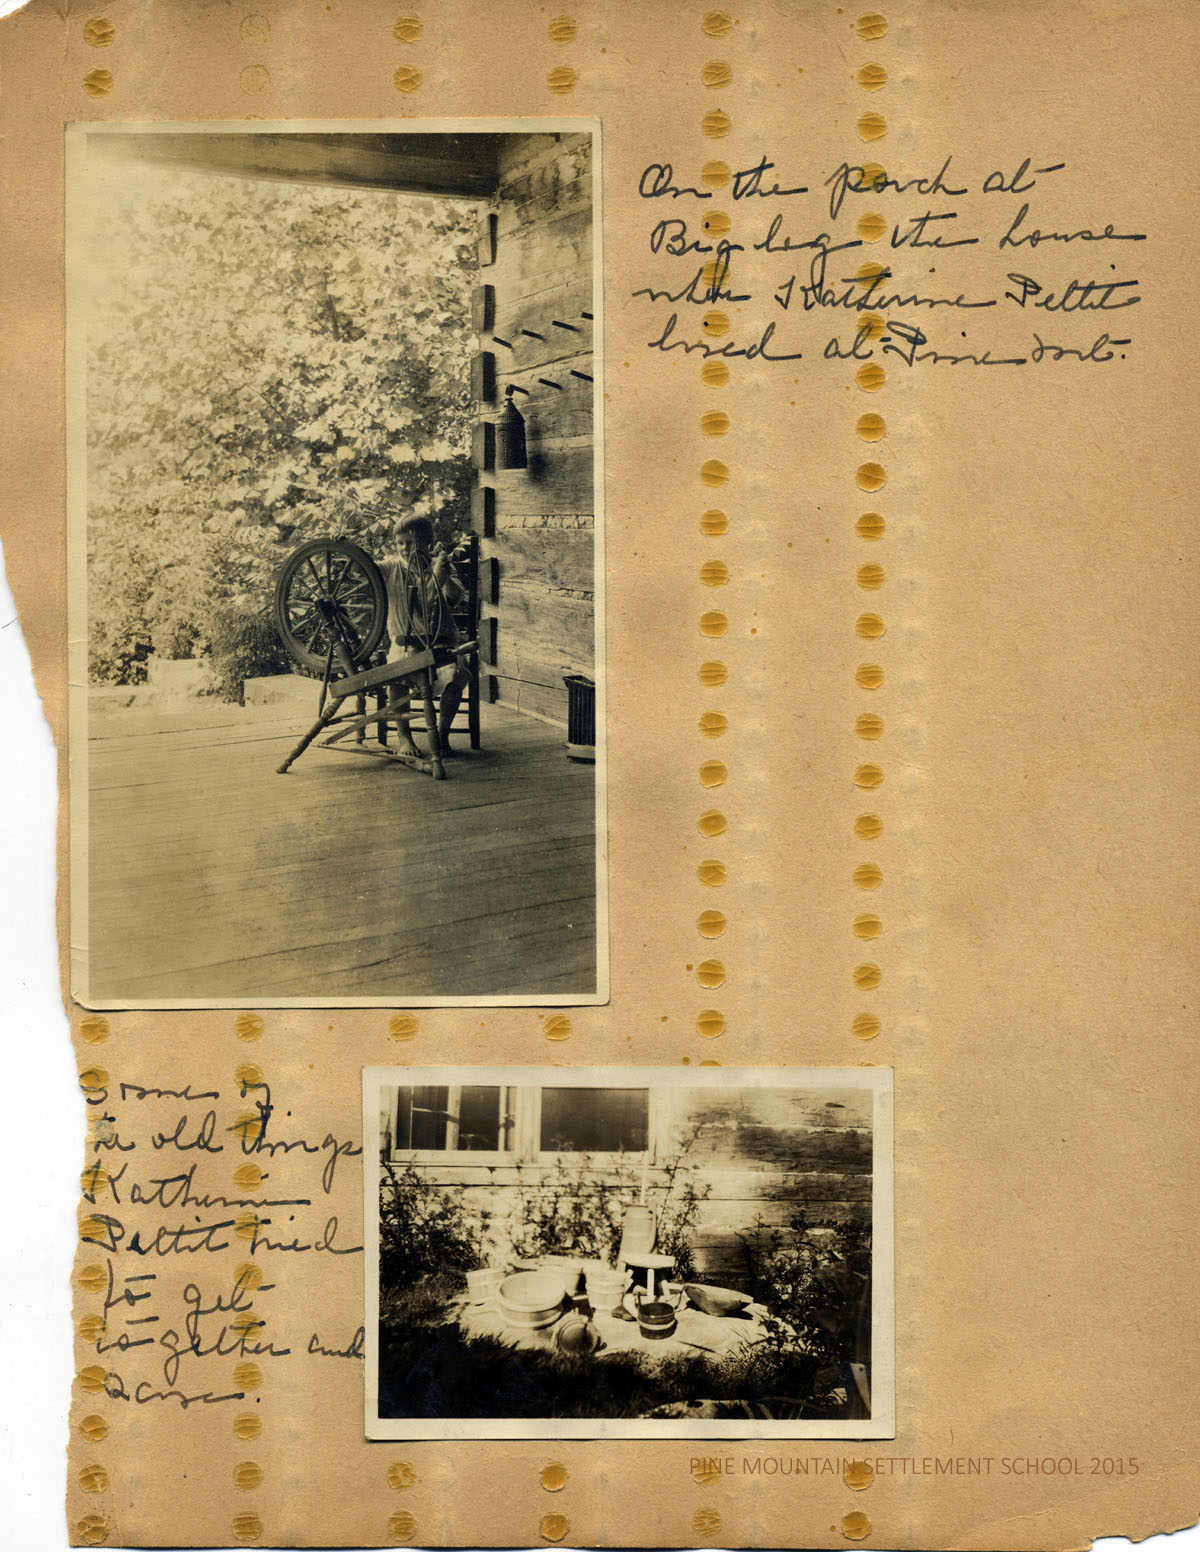 On the porch at
Big log the house
where Katherine Pettit
lived at Pine Mt.
Some of
the old things
Katherine
Pettit tried
to get
together and
save.
PINE MOUNTAIN SETTLEMENT SCHOOL 2015